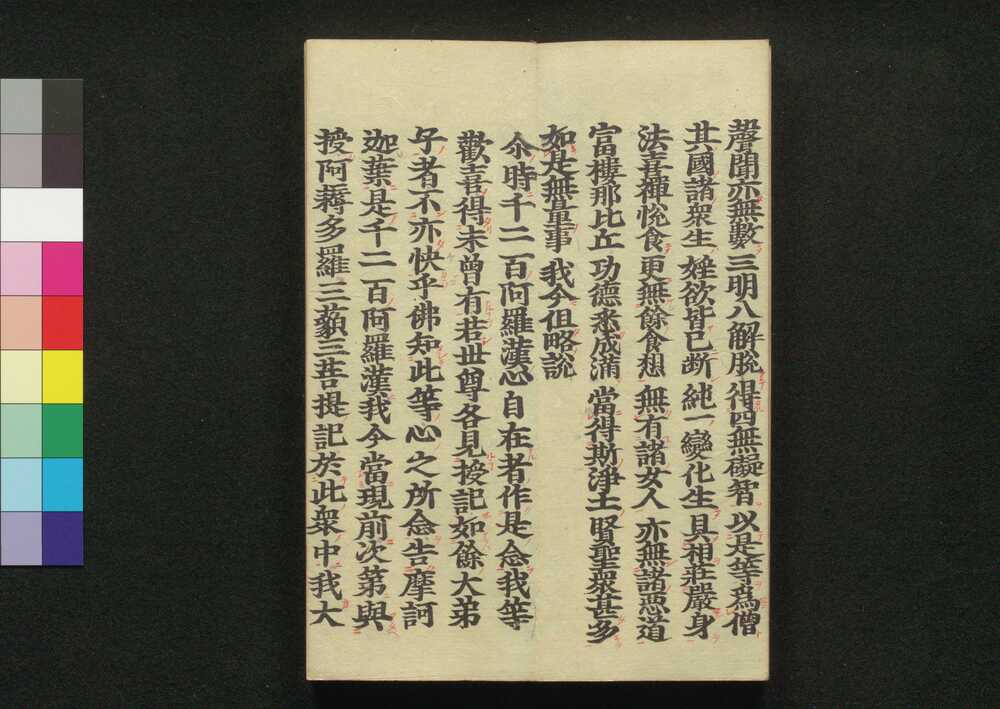 聲聞亦無數 三明八解脫 得四無礙智 以是等爲僧
其國諸衆生 婬欲皆已断 純一變化生 具相莊嚴身
法喜禪悅食 更無餘食想 無有諸女人 亦無諸惡道
富樓那比丘 功德悉成滿 當得斯淨土 賢聖衆甚多
如是無量事 我今但略說
尒時千二百阿羅漢心自在者作是念我等
歡喜得未曾有若世尊各見授記如餘大弟
子者不亦快乎佛知此等心之所念告摩訶
迦葉是千二百阿羅漢我今當現前次第與
授阿耨多羅三藐三菩提記於此衆中我大